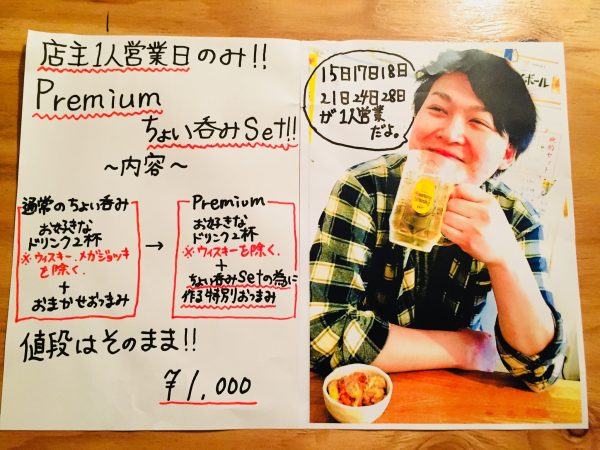 店主1人営業日のみ!!
Premium
ちょい呑みSet!!
～内容～
通常のちょい呑み
お好きな
ドリンク2杯
※ウィスキー、メガジョッキ
を除く.
+
おまかせおつまみ
→
Premium
お好きな
ドリンク2杯
※ウィスキーを除く.
+
ちょい呑みSetの為に
作る特別おつまみ
値段はそのまま!!
¥1,000
15日17日18日
21日24日28日
が1人営業
だよ。
ボール